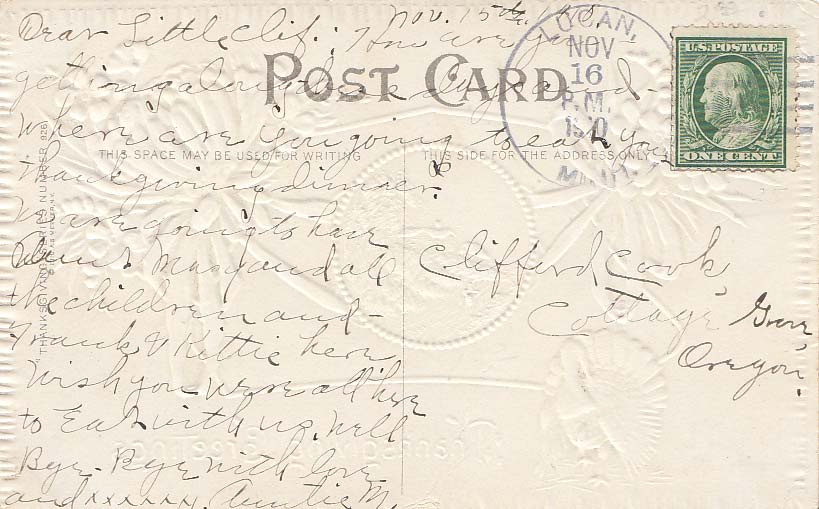 Nov. 15th, 190
Dear Little Clif: How are you
getting along these days and
where are you going to eat your
thanksgiving dinner?
We are going to have
Aunt Mary and all
the children and
Frank & Kittie here
Wish you were all here
to Eat with us. Well
Bye-Bye with love
and xxxxxx. Auntie M.
POST CARD
THIS SPACE MAY BE USED FOR WRITING
THIS SIDE FOR THE ADDRESS ONLY
"THANKSGIVING" SERIES NUMBER 926
Clifford Cook,
Cottage Grove,
Oregon.
NOV
16
P.M.
MONT.
U.S. POSTAGE
ONE CENT
Thanksgiving Greetings